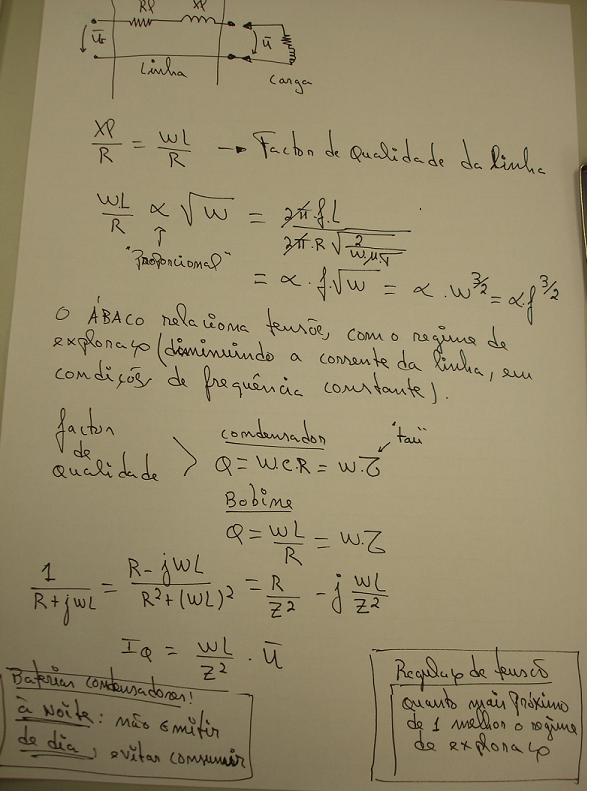 RP XP
Ū
Linha
Carga
XP/R = WL/R → Factor de Qualidade da linha
WL/R ∝ √W = 2π.f.L / 2π.R √(2/W.μ.∇)
"Proporcional"
= α . f.√W = α . W^3/2 = α.f^3/2
O ÁBACO relaciona tensões, com o regime de
exploração (diminuindo a corrente da linha, em
condições de frequência constante).
factor
de
qualidade
condensador
Q = W.C.R = W.τ
"tau"
Bobine
Q = WL/R = W.τ
1/(R+jWL) = (R-jWL)/(R²+(WL)²) = R/Z² - j WL/Z²
IQ = WL/Z² . Ū
Baterias condensadores!
à NOITE: não emitir
de dia, evitar consumir
Regulação de tensão
Quanto mais próximo
de 1 melhor o regime
de exploração